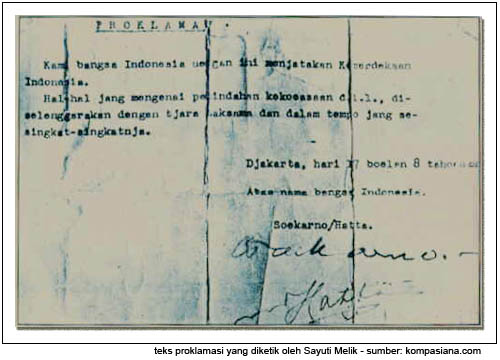 P R O K L A M A S I .
Kami bangsa Indonesia dengan ini menjatakan Kemerdekaan
Indonesia.
Hal-hal jang mengenai pemindahan kekoeasaan d.l.l., di-
selenggarakan dengan tjara saksama dan dalam tempo jang se-
singkat-singkatnja.
Djakarta, hari 17 boelan 8 tahoen
Atas nama bangsa Indonesia.
Soekarno/Hatta.
Soekarno.
Hatta
teks proklamasi yang diketik oleh Sayuti Melik - sumber: kompasiana.com